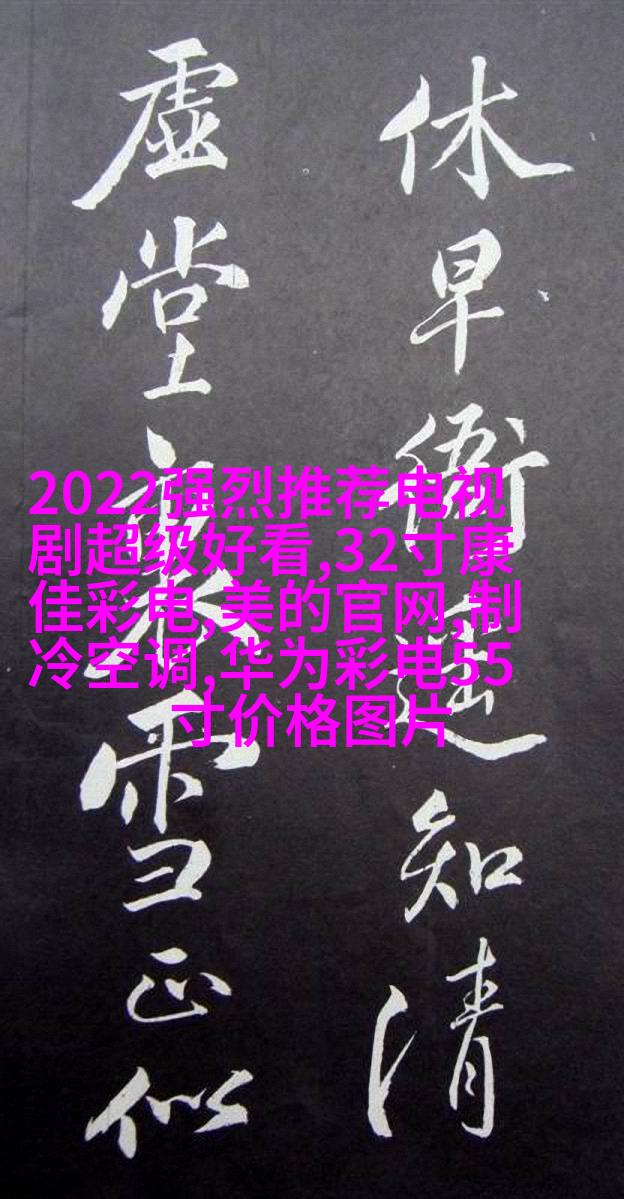 休早衙遥知清
虚堂裏雪正似
2022强烈推荐电视
剧超级好看,32寸康
佳彩电,美的官网,制
冷空调,华为彩电55
寸价格图片